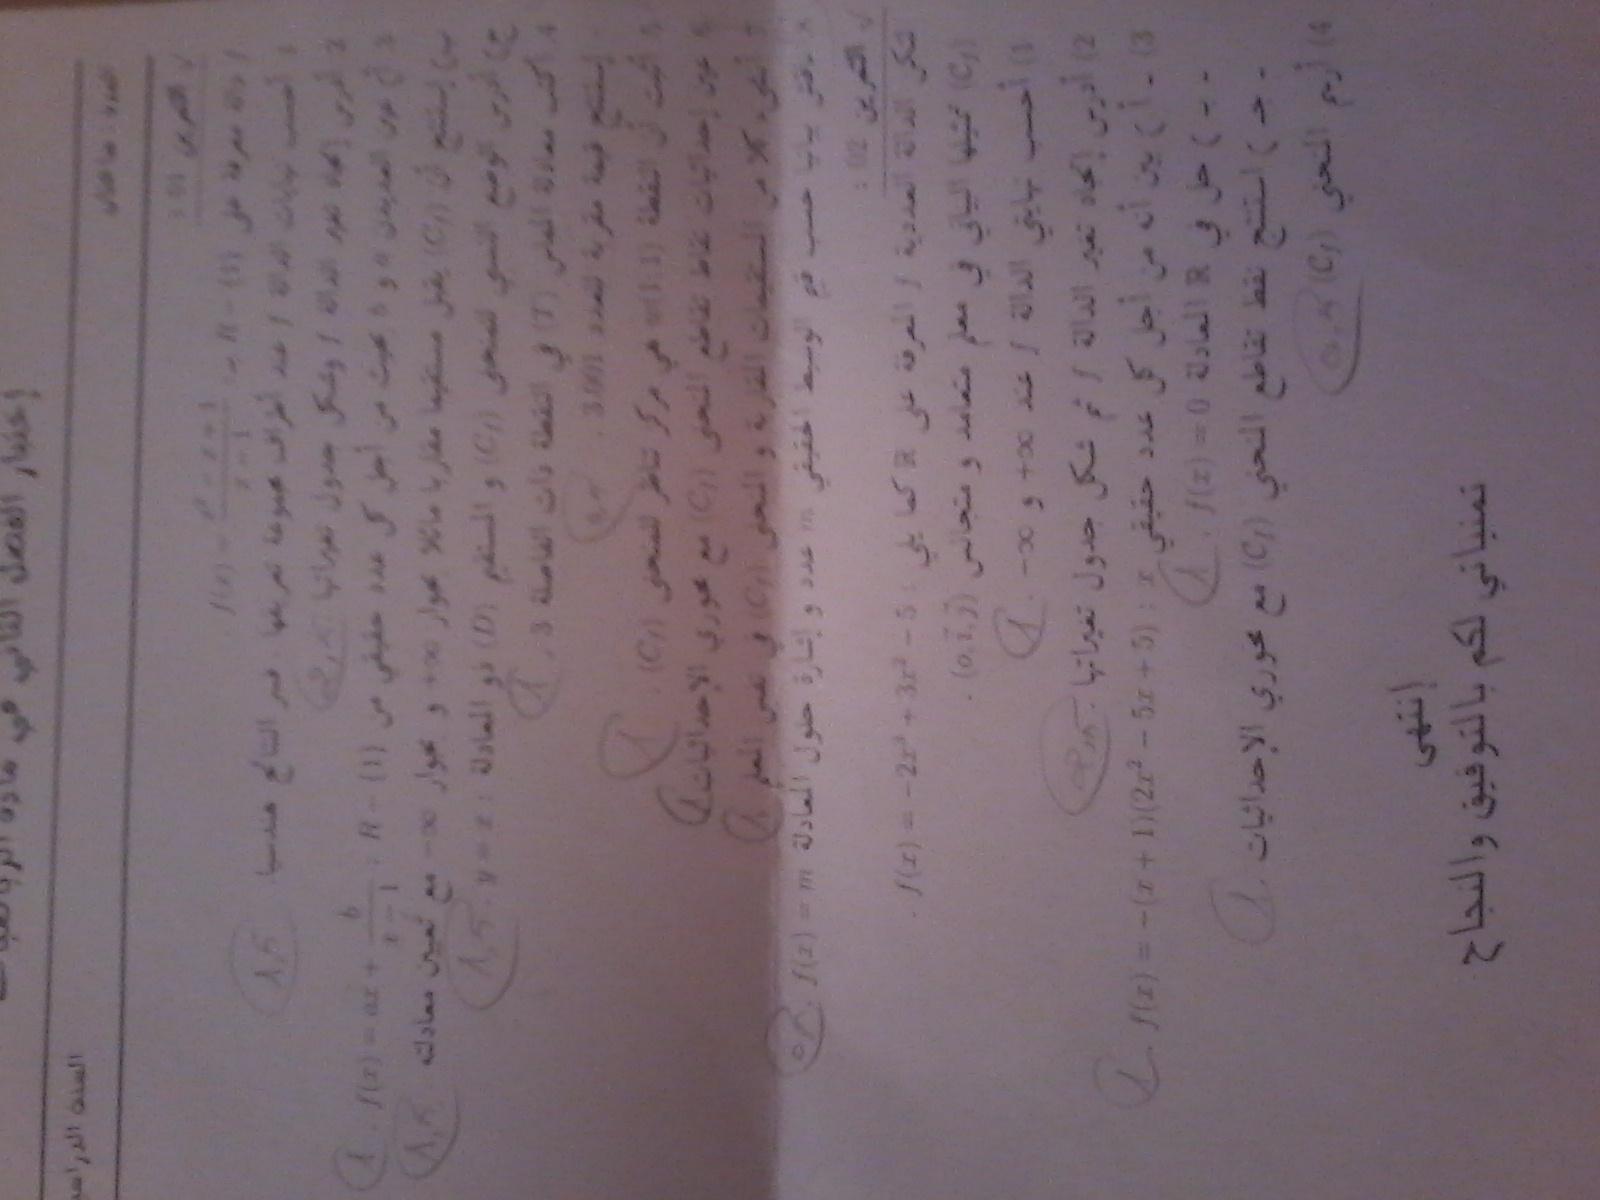 إختبار الفصل الثاني في مادة الرياضيات
المدة : ساعتان
السنة الدراسية
✓ التمرين 01 :
f دالة معرفة على R − {1} بـ : f(x) = (x² − x + 1)/(x − 1) .
1 أحسب نهايات الدالة f عند أطراف مجموعة تعريفها. فسر النتائج هندسيا. 1,5
2 أدرس إتجاه تغير الدالة f وشكل جدول تغيراتها.
3 أ) عين العددين a و b بحيث من أجل كل عدد حقيقي من R − {1} : f(x) = ax + b/(x − 1) . 1
ب) إستنتج أن (Cf) يقبل مستقيما مقاربا مائلا بجوار ∞+ و بجوار ∞− مع تعيين معادلته 1,5
ج) أدرس الوضع النسبي للمنحنى (Cf) و المستقيم (D) ذو المعادلة : y = x . 1,5
4 أكتب معادلة المماس (T) في النقطة ذات الفاصلة 3 . 1
إستنتج قيمة مقربة للعدد 3.001 .
5 أثبت أن النقطة w(1; 1) هي مركز تناظر للمنحنى (Cf) . 1
6 عين إحداثيات نقاط تقاطع المنحنى (Cf) مع محوري الإحداثيات 1
7 أنشئ كلا من المستقيمات المقاربة و المنحنى (Cf) في نفس المعلم 1
8 ناقش بيانيا حسب قيم الوسيط الحقيقي m عدد و إشارة حلول المعادلة f(x) = m .
✓ التمرين 02 :
لتكن الدالة العددية f المعرفة على R كما يلي : f(x) = −2x³ + 3x² − 5 .
(Cf) تمثيلها البياني في معلم متعامد و متجانس (o, i, j) .
1) أحسب نهايتي الدالة f عند ∞+ و ∞− . 1
2) أدرس إتجاه تغير الدالة f ثم شكل جدول تغيراتها.
3) - أ ) بين أنه من أجل كل عدد حقيقي x : f(x) = −(x + 1)(2x² − 5x + 5) . 1
- ب ) حل في R المعادلة f(x) = 0 . 1
- جـ ) استنتج نقط تقاطع المنحني (Cf) مع محوري الإحداثيات . 1
4) أرسم المنحني (Cf) 0,5
إنتهى
تمنياتي لكم بالتوفيق والنجاح